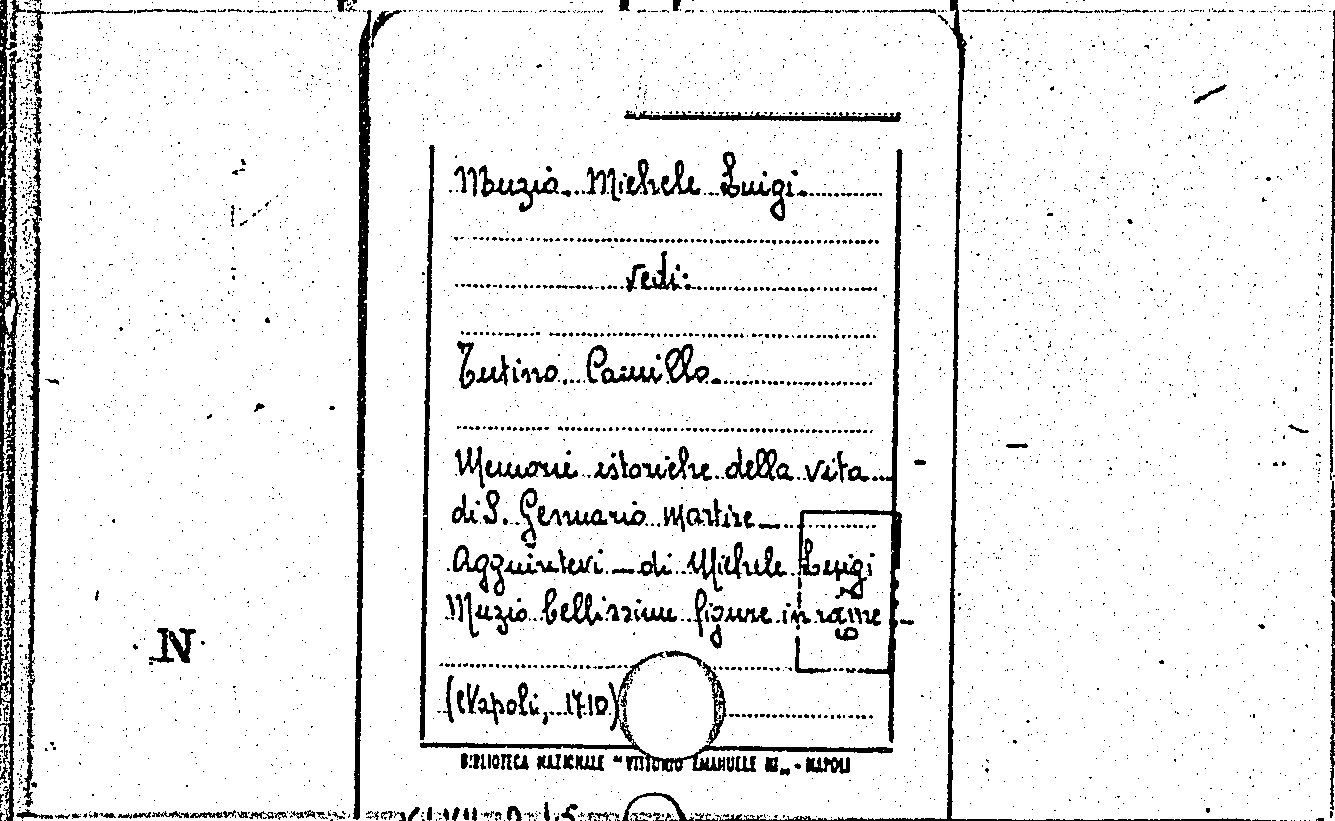 Muzio Michele Luigi.
vedi:
Tutino Camillo.
Memorie istoriche della vita
di S. Gennaro Martire _
Aggiuntevi _ di Michele Luigi
Muzio bellissime figure in rame _
N
(Napoli, 1710)
BIBLIOTECA NAZIONALE "VITTORIO EMANUELE III" - NAPOLI